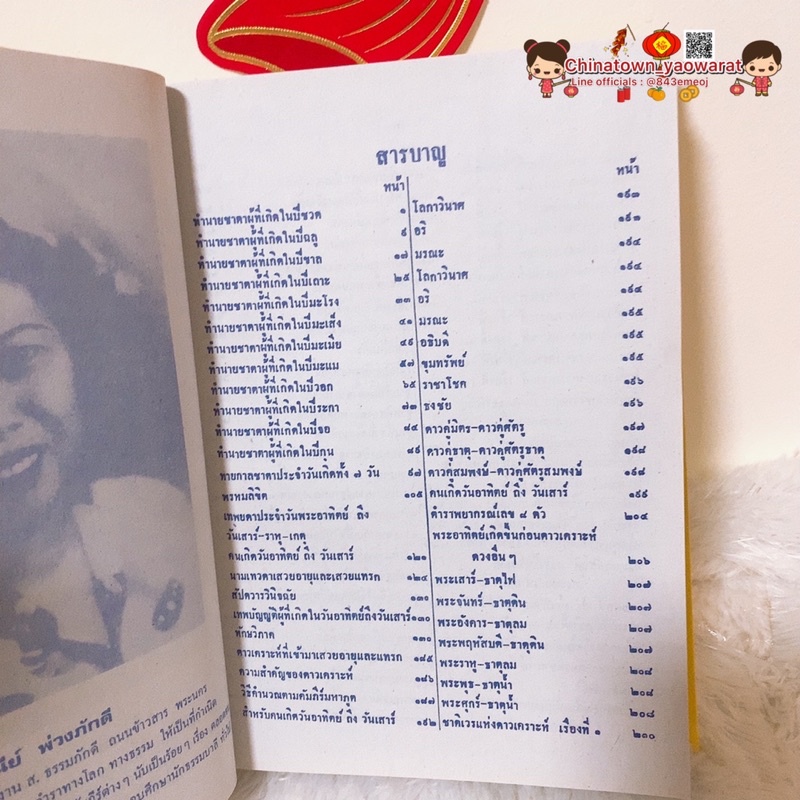 Chinatown_yaowarat
Line officials : @843emeoj
สารบาญ
หน้า
ทำนายชาตาผู้ที่เกิดในปีชวด ๑
ทำนายชาตาผู้ที่เกิดในปีฉลู ๙
ทำนายชาตาผู้ที่เกิดในปีขาล ๑๗
ทำนายชาตาผู้ที่เกิดในปีเถาะ ๒๕
ทำนายชาตาผู้ที่เกิดในปีมะโรง ๓๓
ทำนายชาตาผู้ที่เกิดในปีมะเส็ง ๔๑
ทำนายชาตาผู้ที่เกิดในปีมะเมีย ๔๙
ทำนายชาตาผู้ที่เกิดในปีมะแม ๕๗
ทำนายชาตาผู้ที่เกิดในปีวอก ๖๕
ทำนายชาตาผู้ที่เกิดในปีระกา ๗๓
ทำนายชาตาผู้ที่เกิดในปีจอ
ทำนายชาตาผู้ที่เกิดในปีกุน
ทายกาลชาตาประจำวันเกิดทั้ง ๗ วัน
พรหมลิขิต ๑๐๕
เทพยดาประจำวันพระอาทิตย์ ถึง
วันเสาร์-ราหู-เกตุ
คนเกิดวันอาทิตย์ ถึง วันเสาร์ ๑๒๑
นามเทวดาเสวยอายุและเสวยแทรก ๑๒๔
สัปดาวารวินิจฉัย ๑๓๐
เทพบัญญัติผู้ที่เกิดในวันอาทิตย์ถึงวันเสาร์ ๑๓๐
ทักษวิภาค ๑๓๐
ดาวเคราะห์ที่เข้ามาเสวยอายุและแทรก ๑๔๕
ความสำคัญของดาวเคราะห์ ๑๔๖
วิธีคำนวณตามคัมภีร์มหาภูต ๑๘๗
สำหรับคนเกิดวันอาทิตย์ ถึง วันเสาร์ ๑๙๒
หน้า
โลกาวินาศ ๑๙๓
อริ
มรณะ ๑๙๔
โลกาวินาศ ๑๙๔
อริ ๑๙๔
มรณะ ๑๙๕
อธิบดี ๑๙๕
ขุมทรัพย์ ๑๙๕
ราชาโชค ๑๙๖
ธงชัย ๑๙๖
ดาวคู่มิตร-ดาวคู่ศัตรู ๑๙๗
ดาวคู่ธาตุ-ดาวคู่ศัตรูธาตุ ๑๙๘
ดาวคู่สมพงษ์-ดาวคู่ศัตรูสมพงษ์ ๑๙๘
คนเกิดวันอาทิตย์ ถึง วันเสาร์ ๑๙๙
ตำราพยากรณ์เลข ๘ ตัว ๒๐๔
พระอาทิตย์เกิดขึ้นก่อนดาวเคราะห์
ดวงอื่น ๆ ๒๐๖
พระเสาร์-ธาตุไฟ ๒๐๗
พระจันทร์-ธาตุดิน ๒๐๗
พระอังคาร-ธาตุลม ๒๐๗
พระพฤหัสบดี-ธาตุดิน ๒๐๗
พระราหู-ธาตุลม ๒๐๘
พระพุธ-ธาตุน้ำ ๒๐๘
พระศุกร์-ธาตุน้ำ ๒๐๘
ชาติเวรแห่งดาวเคราะห์ เรื่องที่ ๑ ๒๑๐
พ่วงภักดี
งาน ส. ธรรมภักดี ถนนข้าวสาร พระนคร
ตำราทางโลก ทางธรรม ให้เป็นที่กำเนิด
ต่างๆ นับเป็นร้อยๆ เรื่อง